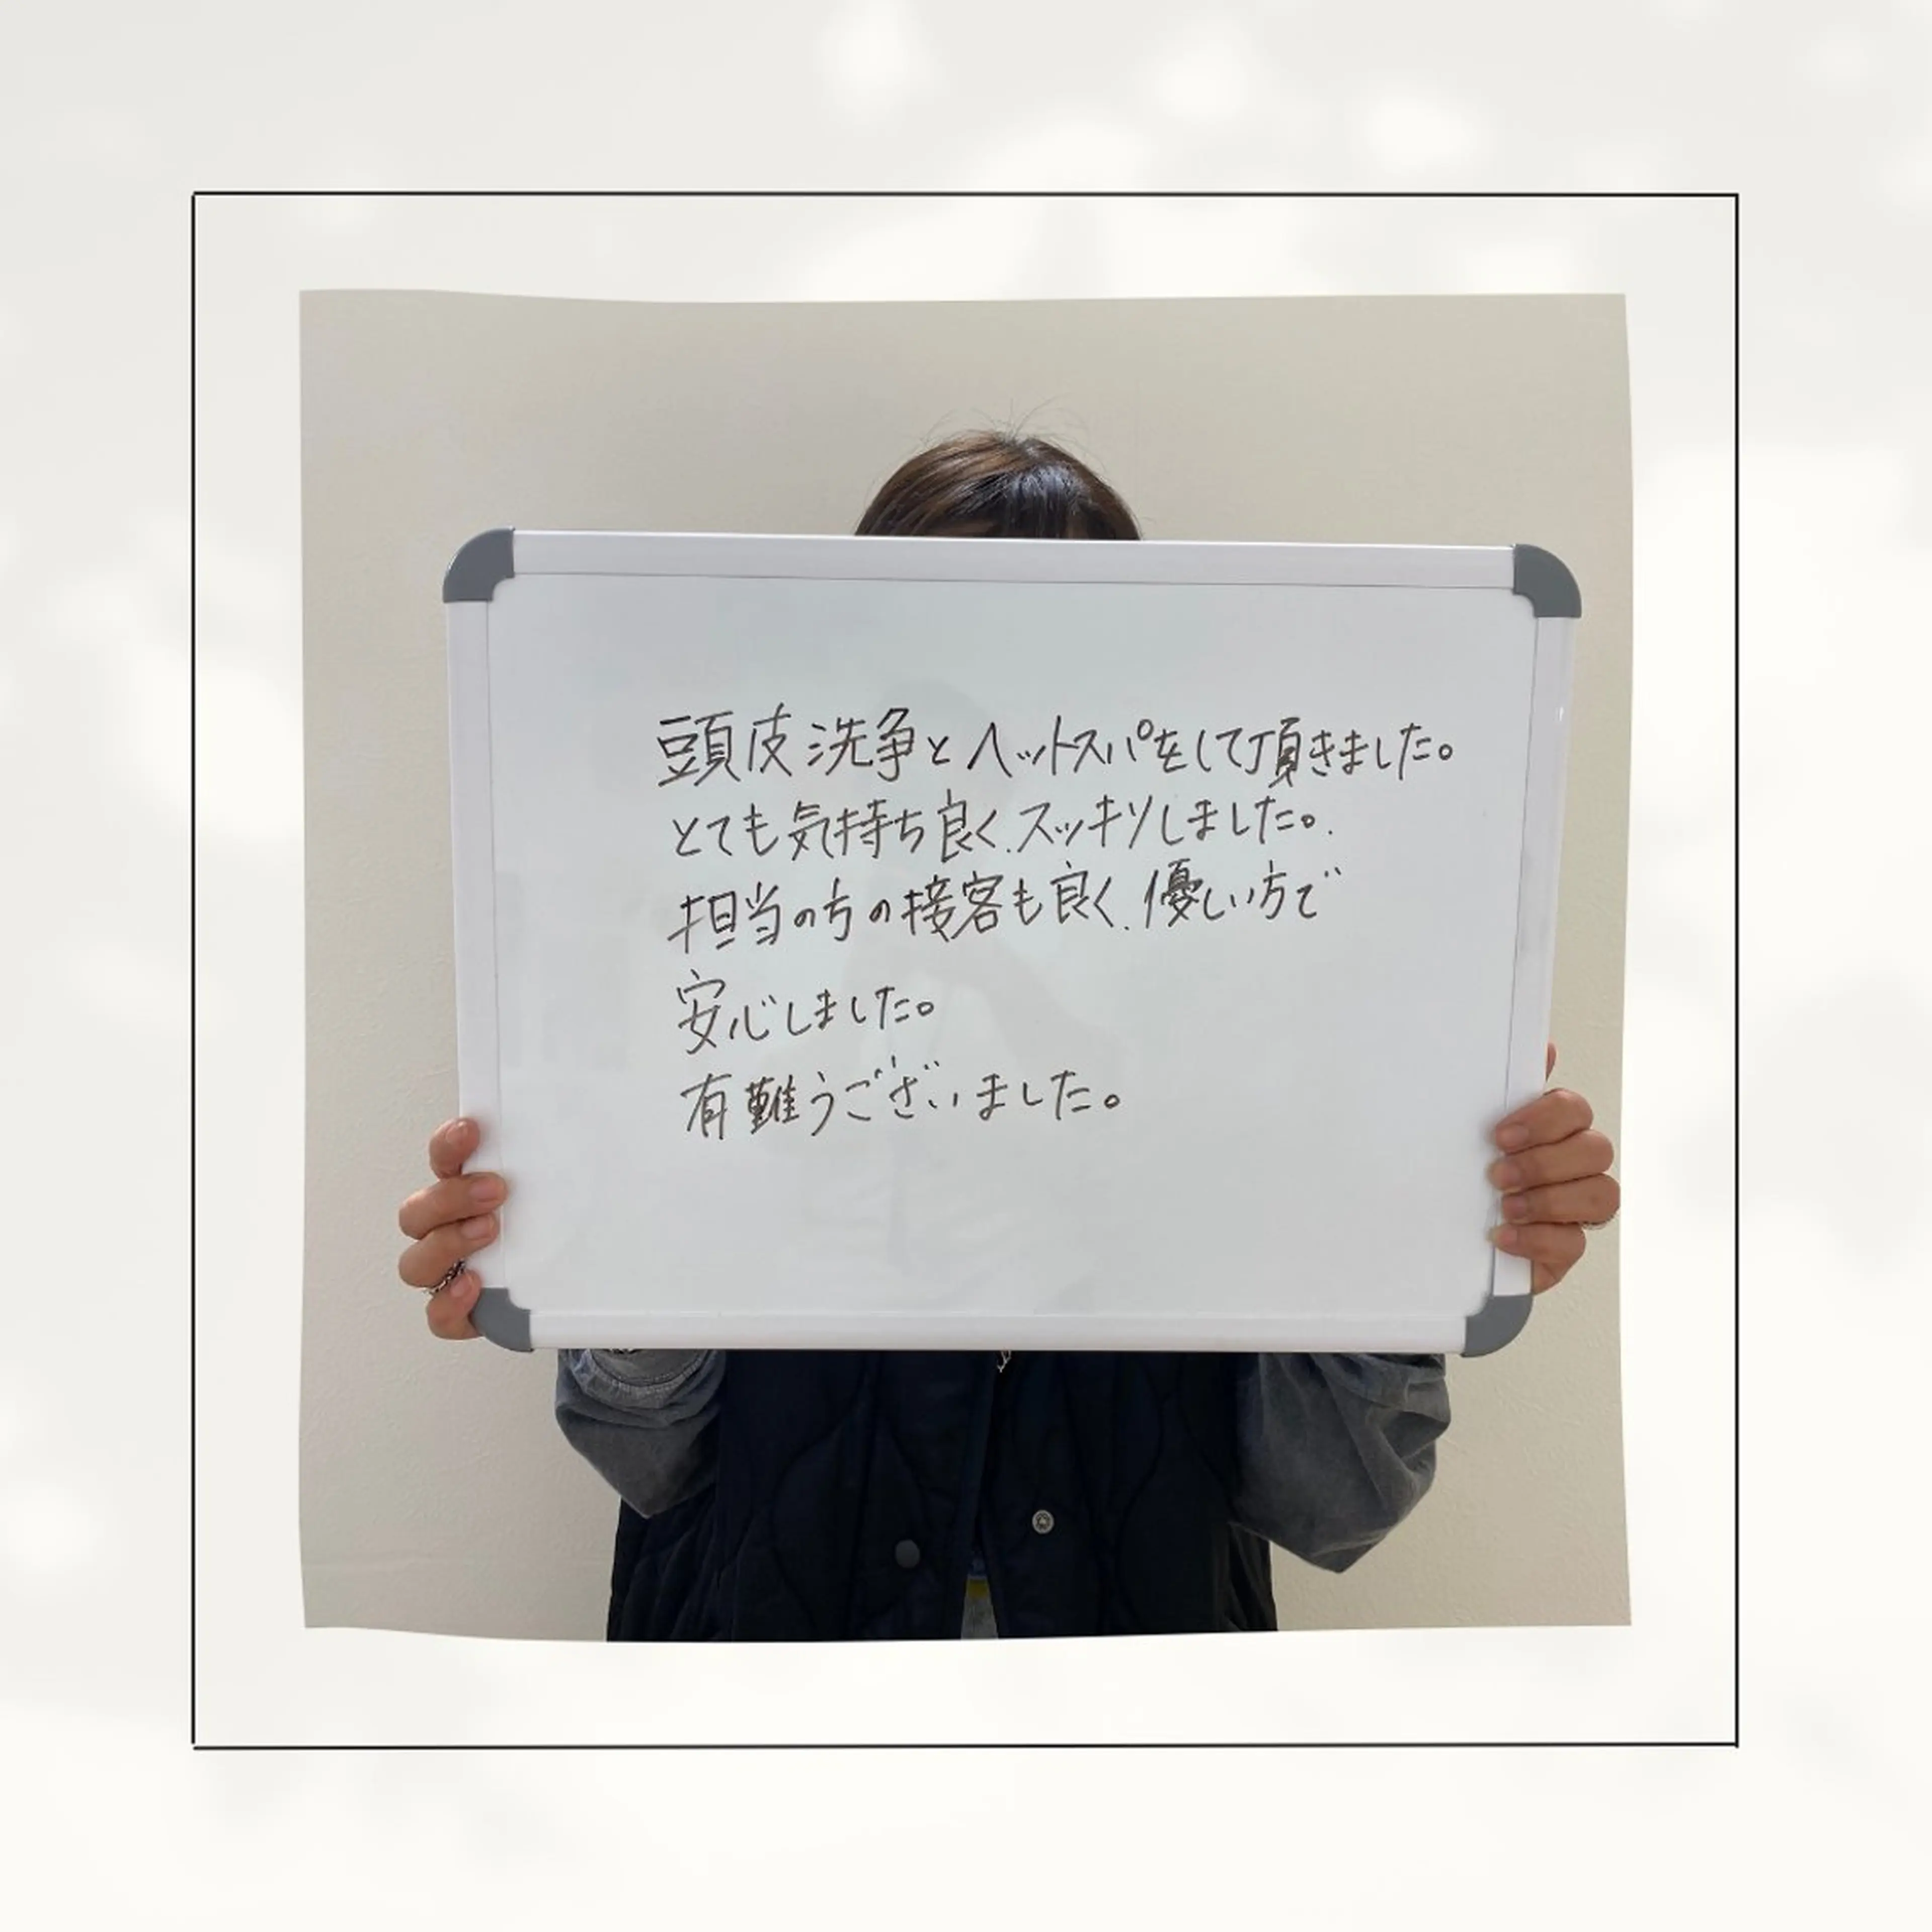 頭皮洗争とヘットスパをして頂きました。
とても気持ち良く、スッキリしました。.
担当の方の接客も良く、優しい方で
安心しました。
有難うございました。